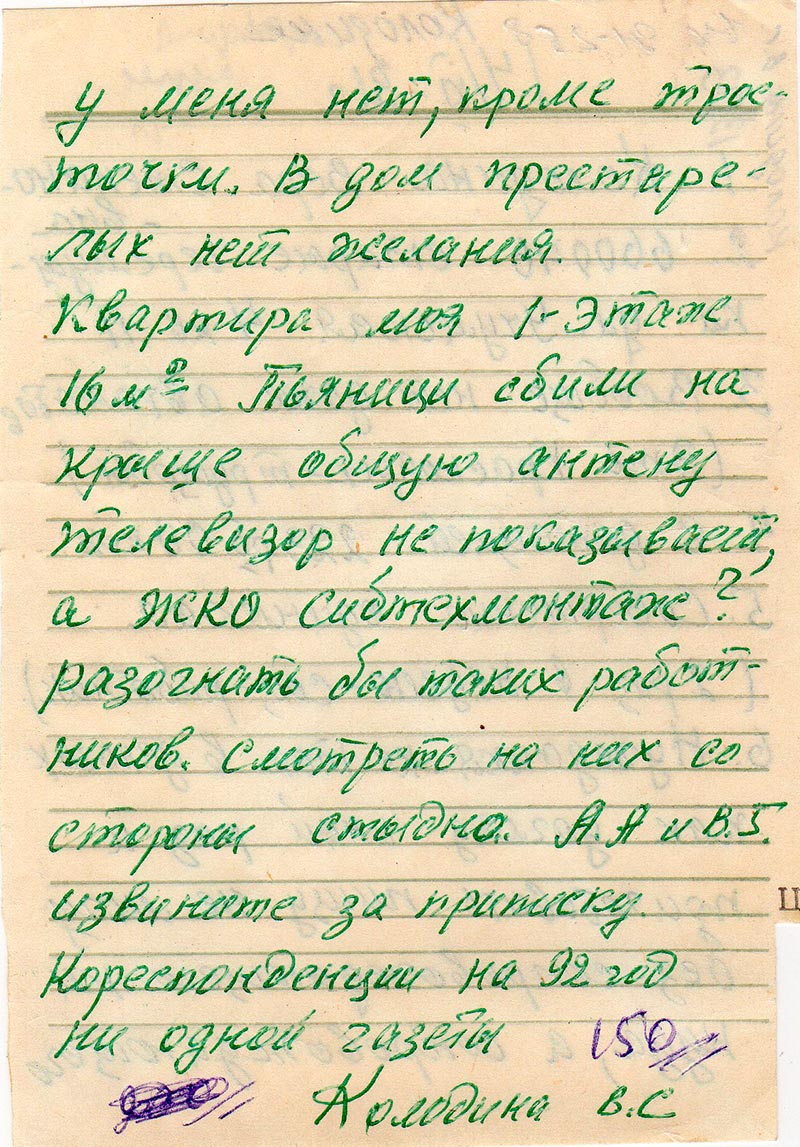 у меня нет, кроме трос-
точки. В дом престаре-
лых нет желания.
Квартира моя 1-этаже
16 м² Пьяници сбили на
крыше общую антену
телевизор не показывает,
а ЖКО Сибтехмонтаж?
разогнать бы таких работ-
ников. смотреть на них со
стороны стыдно. А.А и В.Б.
извините за приписку.
Кореспонденции на 92 год
ни одной газеты
150
Колодина В.С